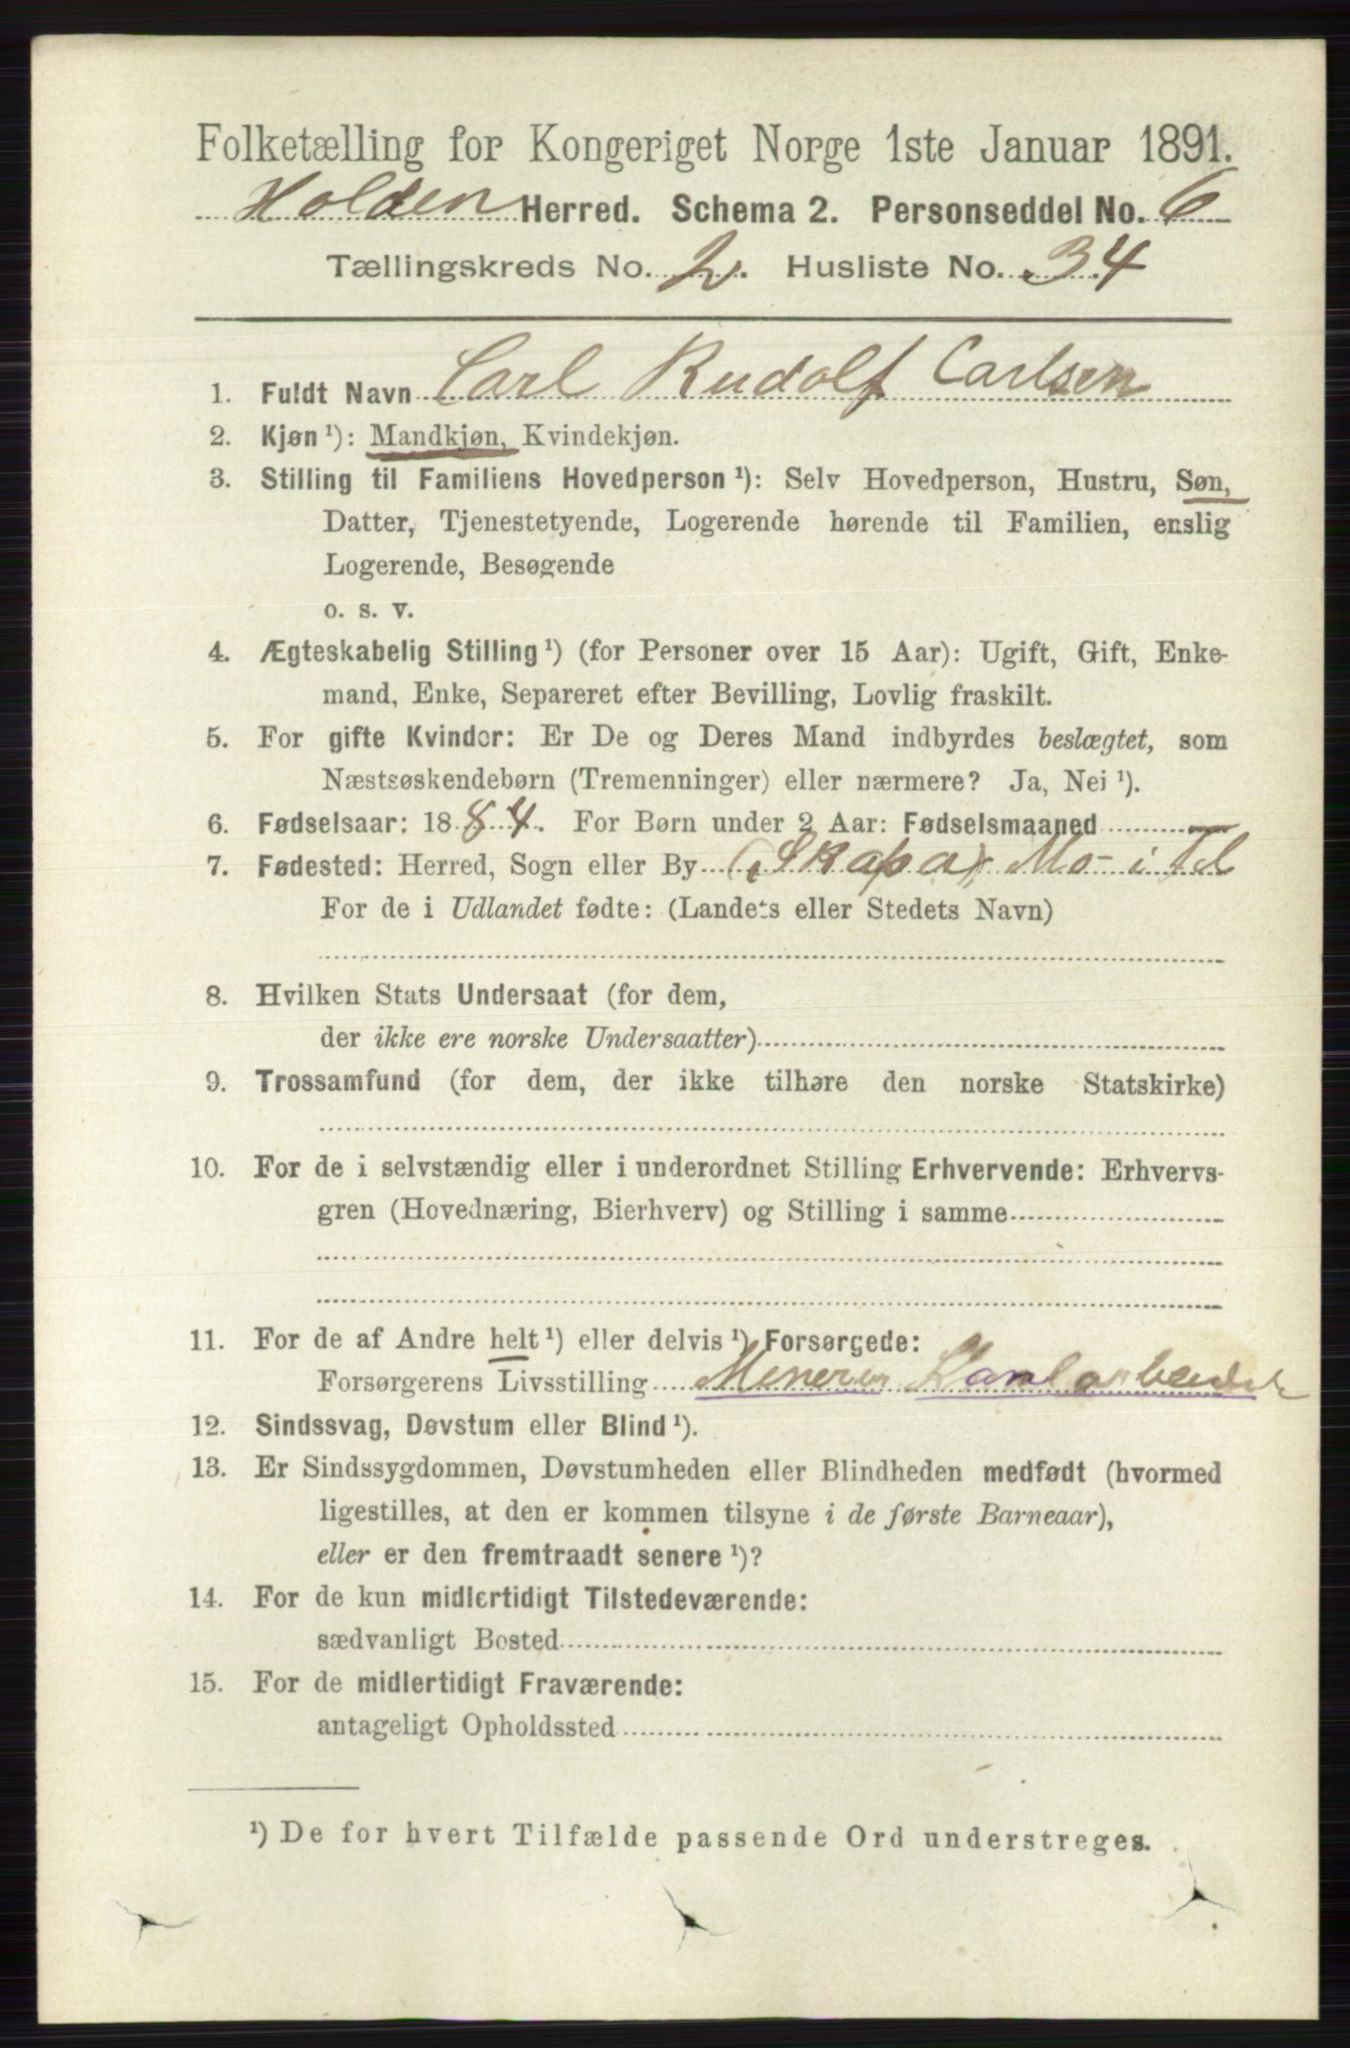 Folketælling for Kongeriget Norge 1ste Januar 1891.
Holden Herred. Schema 2. Personseddel No. 6
Tællingskreds No. 2. Husliste No. 34
1. Fuldt Navn Carl Rudolf Carlsen
2. Kjøn ¹): Mandkjøn, Kvindekjøn.
3. Stilling til Familiens Hovedperson ¹): Selv Hovedperson, Hustru, Søn,
Datter, Tjenestetyende, Logerende hørende til Familien, enslig
Logerende, Besøgende
o. s. v.
4. Ægteskabelig Stilling ¹) (for Personer over 15 Aar): Ugift, Gift, Enke-
mand, Enke, Separeret efter Bevilling, Lovlig fraskilt.
5. For gifte Kvinder: Er De og Deres Mand indbyrdes beslægtet, som
Næstsøskendebørn (Tremenninger) eller nærmere? Ja, Nei ¹).
6. Fødselsaar: 1884. For Børn under 2 Aar: Fødselsmaaned
7. Fødested: Herred, Sogn eller By (Skapa) Mo - i Tel
For de i Udlandet fødte: (Landets eller Stedets Navn)
8. Hvilken Stats Undersaat (for dem,
der ikke ere norske Undersaatter)
9. Trossamfund (for dem, der ikke tilhøre den norske Statskirke)
10. For de i selvstændig eller i underordnet Stilling Erhvervende: Erhvervs-
gren (Hovednæring, Bierhverv) og Stilling i samme
11. For de af Andre helt ¹) eller delvis ¹) Forsørgede:
Forsørgerens Livsstilling Minerer
12. Sindssvag, Døvstum eller Blind ¹).
13. Er Sindssygdommen, Døvstumheden eller Blindheden medfødt (hvormed
ligestilles, at den er kommen tilsyne i de første Barneaar),
eller er den fremtraadt senere ¹)?
14. For de kun midlertidigt Tilstedeværende:
sædvanligt Bosted
15. For de midlertidigt Fraværende:
antageligt Opholdssted
¹) De for hvert Tilfælde passende Ord understreges.